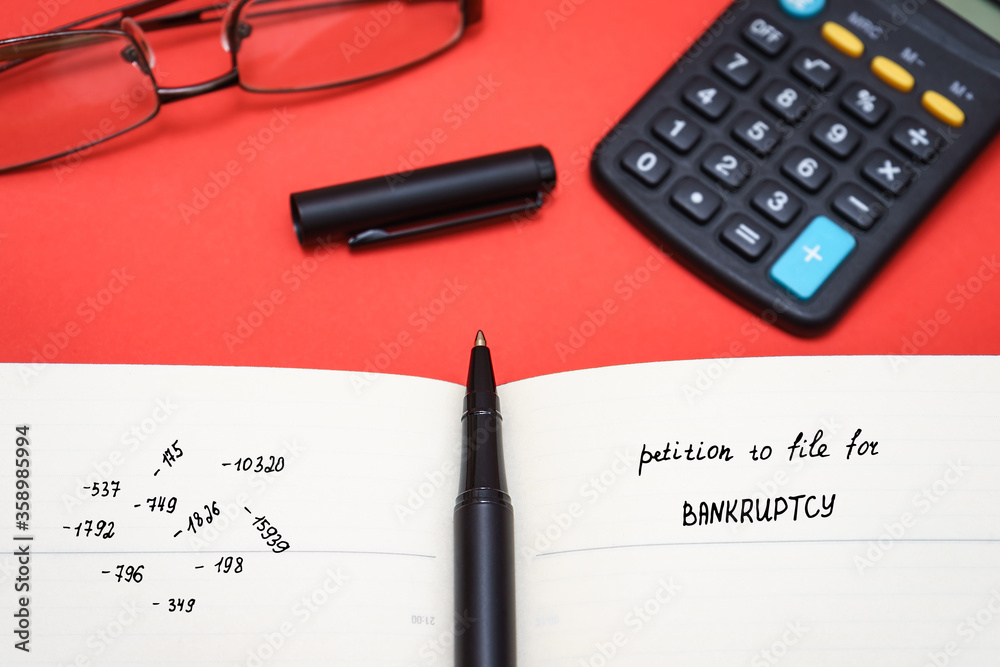 OFF
MRC
M-
M+
7
√
%
÷
4
8
9
×
1
5
6
−
0
2
3
+
•
=
- 175
- 10320
- 537
- 749
- 1826
- 15939
- 1792
- 796
- 198
- 349
petition to file for
BANKRUPTCY
21:00
Adobe Stock | #358985994
Adobe Stock